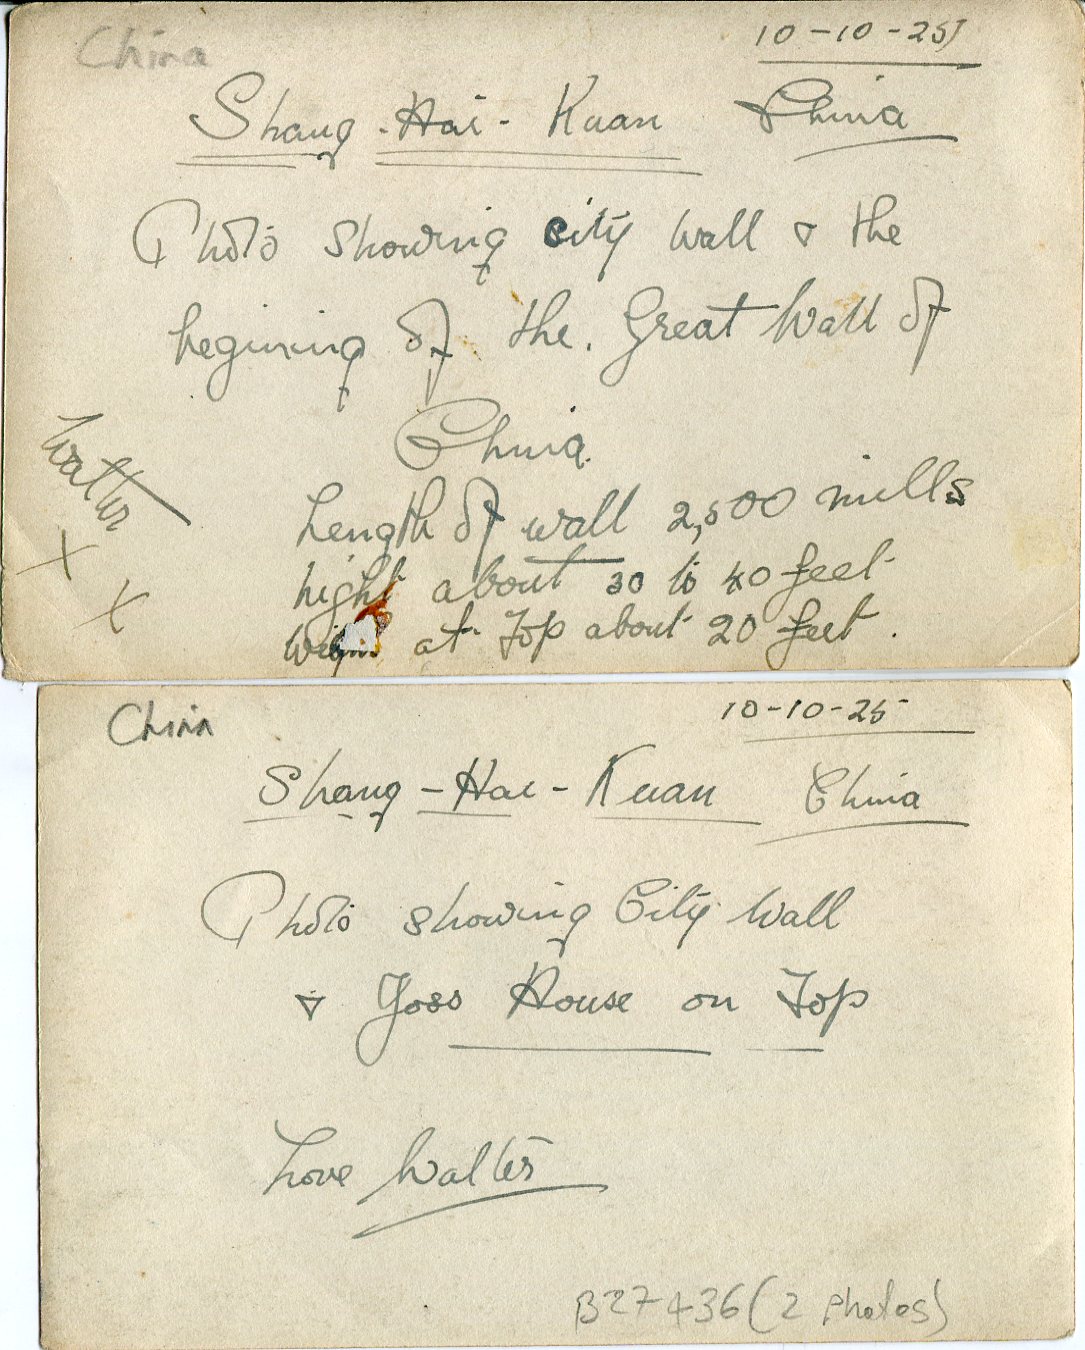 China
10-10-25
Shang-Hai-Kuan China
Photo showing city wall & the
begining of the. Great Wall of
China.
Walter
x
x
Length of wall 2,500 mills
hight about 30 to 40 feet
at Top about 20 feet.
China
10-10-25
Shang-Hai-Kuan China
Photo showing City Wall
& Joss House on Top
Love Walter
B27436 (2 photos)